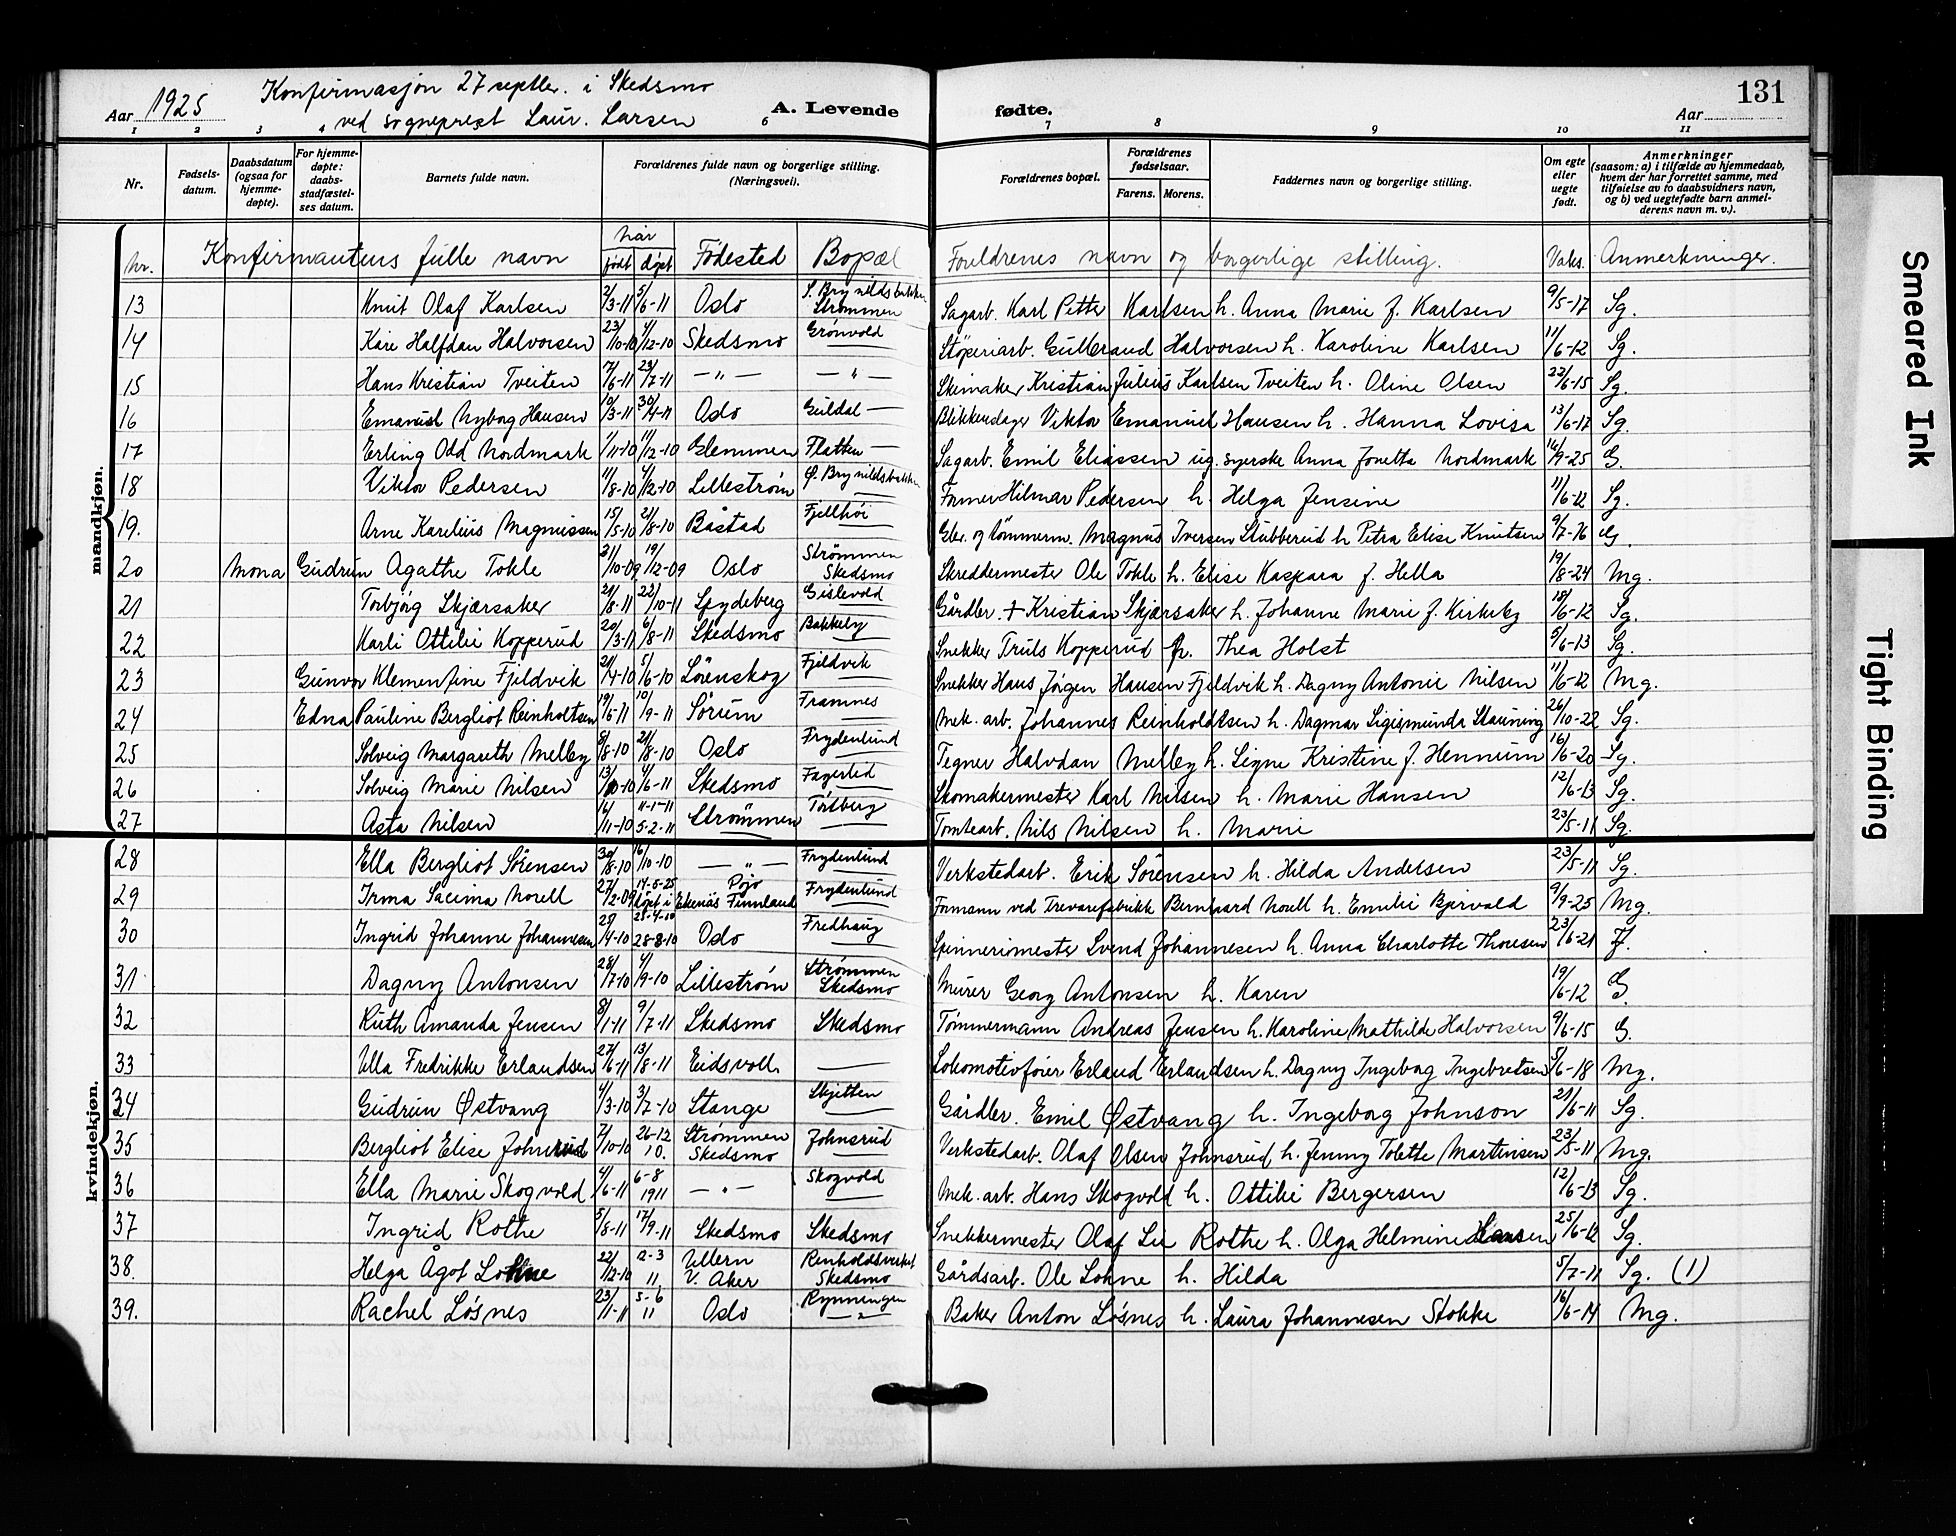 Aar 1925 Konfirmasjon 27 septbr. i Skedsmo
ved sogneprest Laur. Larsen
A. Levende fødte.
131
Aar
1 2 3 4 6 7 8 9 10 11
Nr. | Fødsels-datum. | Daabsdatum (ogsaa for hjemme-døpte). | For hjemme-døpte: daabs-stadfæstel-ses datum. | Barnets fulde navn. | Forældrenes fulde navn og borgerlige stilling. (Næringsvei). | Forældrenes bopæl. | Forældrenes fødselsaar. Farens. Morens. | Faddernes navn og borgerlige stilling. | Om egte eller uegte født. | Anmerkninger (saasom: a) i tilfælde av hjemmedaab, hvem der har forrettet samme, med tilføielse av to daabsvidners navn, og b) ved uegtefødte barn anmel-derens navn m. v.).
mandkjøn.
Nr. Konfirmantens fulle navn når født døpt Fødested Bopæl Foreldrenes navn og borgerlige stilling. Vaks. Anmerkninger.
13 Knut Olaf Karlsen 2/3-11 5/6-11 Oslo S. Brynildsbakken Strømmen Sagarb. Karl Petter Karlsen h. Anna Marie f. Karlsen 9/5-17 Sg.
14 Kåre Halfdan Halvorsen 23/10-10 4/12-10 Skedsmo Grønvold Støperiarb. Gulbrand Halvorsen h. Karoline Karlsen 11/6-12 Sg.
15 Hans Kristian Tveiten 7/6-11 23/7-11 — " — — " — Skimaker Kristian Julius Karlsen Tveiten h. Oline Olsen 22/6-15 Sg.
16 Emanuel Nyborg Hansen 10/3-11 30/4-11 Oslo Guldal — Blikkenslager Viktor Emanuel Hansen h. Hanna Lovisa 13/6-17 Sg.
17 Erling Odd Nordmark 1/11-10 11/12-10 Glemmen Flatten — Sagarb. Emil Eliassen ug. syerske Anna Jonetta Nordmark 16/9-25 G.
18 Viktor Pedersen 11/8-10 4/12-10 Lillestrøm Ø. Brynildsbakken Former Hilmar Pedersen h. Helga Jensine 11/6-12 Sg.
19. Arne Karelius Magnussen 15/5-10 21/8-10 Båstad Fjellhøi Gbr. og tømmerm. Magnus Iversen Stubberud h Petra Elise Knutsen 9/7-16 G.
20 Mona Gudrun Agathe Tokle 31/10-09 19/12-09 Oslo Strømmen Skedsmo Skreddermester Ole Tokle h. Elise Kaspara f. Hella 19/8-24 Mg.
21 Torbjørg Skjærsaker 21/8-11 22/10-11 Spydeberg Gislevold Gårdbr. + Kristian Skjærsaker h. Johanne Marie f. Kirkeby 18/6-12 Sg.
22 Karli Ottilie Kopperud 20/3-11 6/8-11 Skedsmo Bakkeby Snekker Truls Kopperud h. Thea Holst 5/6-13 Sg.
23 Gunvor Klementine Fjeldvik 21/4-10 5/6-10 Lørenskog Fjeldvik Snekker Hans Jørgen Hansen Fjeldvik h. Dagny Antonie Nilsen 11/6-12 Mg.
24 Edna Pauline Bergliot Reinholtsen 19/6-11 10/9-11 Sørum Framnes Mek. arb. Johannes Reinholdtsen h. Dagmar Sigismunda Stauning 26/10-22 Sg.
25 Solveig Margareth Melby 8/8-10 21/8-10 Oslo Frydenlund Tegner Halvdan Melby h. Signe Kristine f. Hennum 16/6-20 Sg.
26 Solveig Marie Nilsen 13/10-10 4/6-11 Skedsmo Fagerlid Skomakermester Karl Nilsen h. Marie Hansen 12/6-13 Sg.
27 Asta Nilsen 16/11-10 11-1-11 5-2-11 Strømmen Tortberg Tomtearb. Nils Nilsen h. Marie 23/5-11 Sg.
kvindekjøn.
28 Ella Bergliot Sørensen 30/8-10 16/10-10 — " — Frydenlund Verkstedarb. Erik Sørensen h. Hilda Andersen 23/5-11 Sg.
29 Irma Norell 27/2-09 14-5-25 døpt i Pojo Ekenäs Finnland Frydenlund Formann ved Trevarefabrikk Bernhard Norell h. Emilie Bjørvald 9/9-25 Mg.
30 Ingrid Johanne Johannesen 25/4-10 28-8-10 Oslo Fredhaug Spinnerimester Svend Johannesen h. Anna Charlotte Thoresen 23/6-21
31 Dagny Antonsen 28/7-10 4/9-10 Lillestrøm Strømmen Skedsmo Murer Georg Antonsen h. Karen 19/6-12 G.
32 Ruth Amanda Jensen 8/1-11 9/7-11 Skedsmo Skedsmo Tømmermann Andreas Jensen h. Karoline Mathilde Halvorsen 9/6-15 G.
33 Ulla Fredrikke Erlandsen 27/6-11 13/8-11 Eidsvoll. — Lokomotivfører Erland Erlandsen h. Dagny Ingeborg Ingebretsen 5/6-18 Mg.
34 Gudrun Østvang 4/3-10 3/7-10 Stange Skjetten Gårdbr. Emil Østvang h. Ingeborg Johnson 21/6-11 Sg.
35 Bergliot Elise Johnsrud 2/10-10 26-12 10. Strømmen Skedsmo Johnsrud Verkstedarb. Olaf Olsen Johnsrud h. Jenny Tolette Martinsen 23/5-11 Mg.
36 Ella Marie Skogvold 4/6-11 6-8 1911 — " — Skogvold Mek. arb. Hans Skogvold h. Ottilie Bergersen 12/6-13 Sg.
37 Ingrid Rothe 5/8-11 17/9-11 Skedsmo Skedsmo Snekkermester Olaf Lie Rothe h. Olga Helmine Hansen 25/6-12 Sg.
38. Helga Ågot Lohne 22/12-10 12-3 11 Ullern V. Aker Renholdsverket Skedsmo Gårdsarb. Ole Lohne h. Hilda 5/7-11 Sg. (1)
39. Rachel Løsnes 23/1-11 5-6 11 Oslo Rynningen — " — Baker Anton Løsnes h. Laura Johannesen Stokke 16/6-14 Mg.
Smeared Ink
Tight Binding